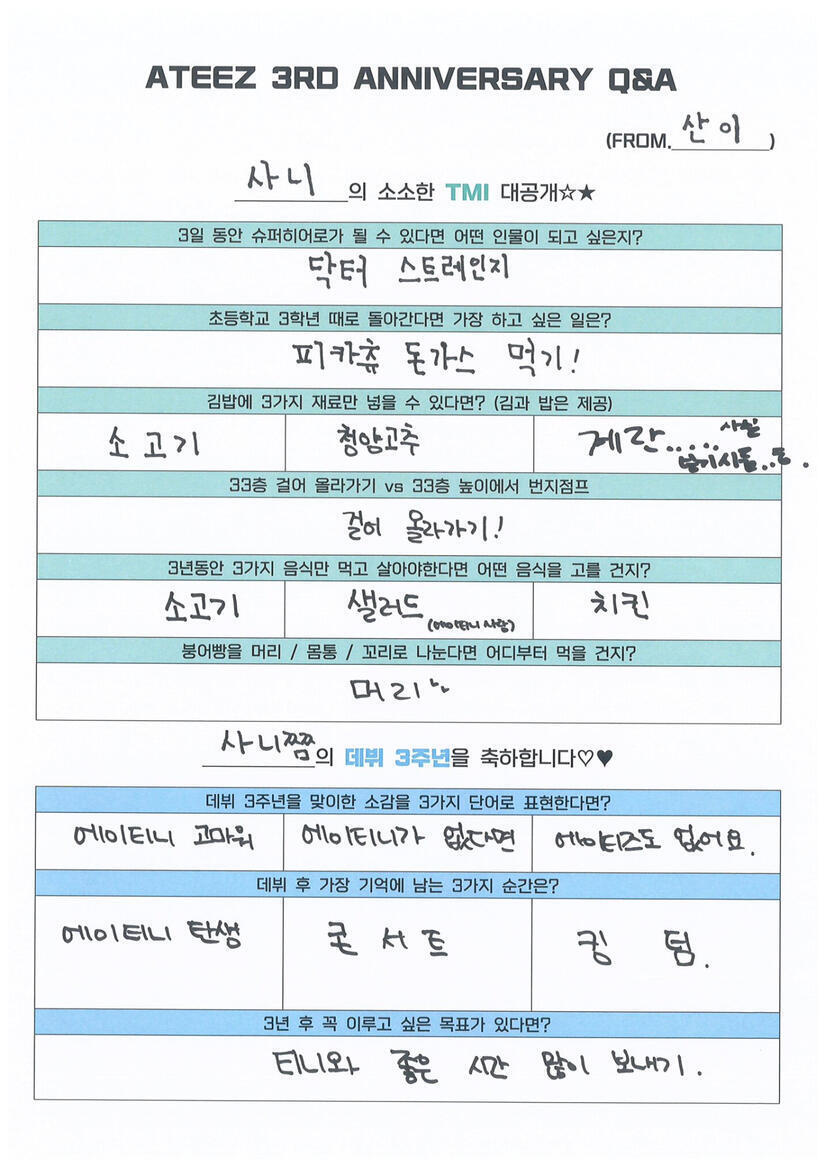 ATEEZ 3RD ANNIVERSARY Q&A
(FROM. 산이 )
사니 의 소소한 TMI 대공개☆★
3일 동안 슈퍼히어로가 될 수 있다면 어떤 인물이 되고 싶은지?
닥터 스트레인지
초등학교 3학년 때로 돌아간다면 가장 하고 싶은 일은?
피카츄 돈가스 먹기!
김밥에 3가지 재료만 넣을 수 있다면? (김과 밥은 제공)
소고기 청양고추 계란..... 사실
33층 걸어 올라가기 vs 33층 높이에서 번지점프
걸어 올라가기!
3년동안 3가지 음식만 먹고 살아야한다면 어떤 음식을 고를 건지?
소고기 샐러드 치킨
(에이티니 사랑)
붕어빵을 머리 / 몸통 / 꼬리로 나눈다면 어디부터 먹을 건지?
머리
사니쨈의 데뷔 3주년을 축하합니다♡♥
데뷔 3주년을 맞이한 소감을 3가지 단어로 표현한다면?
에이티니 고마워 에이티니가 없다면 에이티즈도 없어요.
데뷔 후 가장 기억에 남는 3가지 순간은?
에이티니 탄생 콘서트 킹덤.
3년 후 꼭 이루고 싶은 목표가 있다면?
티니와 좋은 시간 많이 보내기.